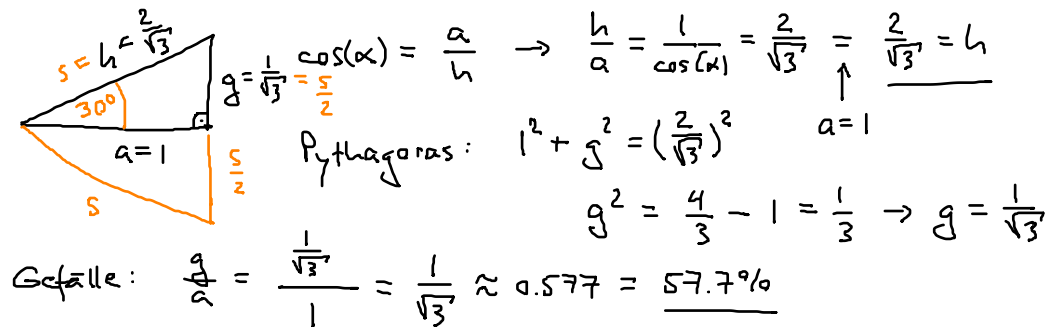 s = h = 2/√3
30°
a = 1
g = 1/√3 = s/2
s/2
s
cos(α) = a/h → h/a = 1/cos(α) = 2/√3 = 2/√3 = h
↑
a = 1
Pythagoras: 1² + g² = (2/√3)²
g² = 4/3 − 1 = 1/3 → g = 1/√3
Gefälle: g/a = (1/√3)/1 = 1/√3 ≈ 0.577 = 57.7%